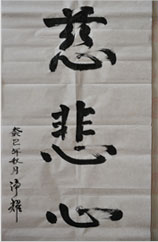 慈悲心
癸巳年秋月
净耀